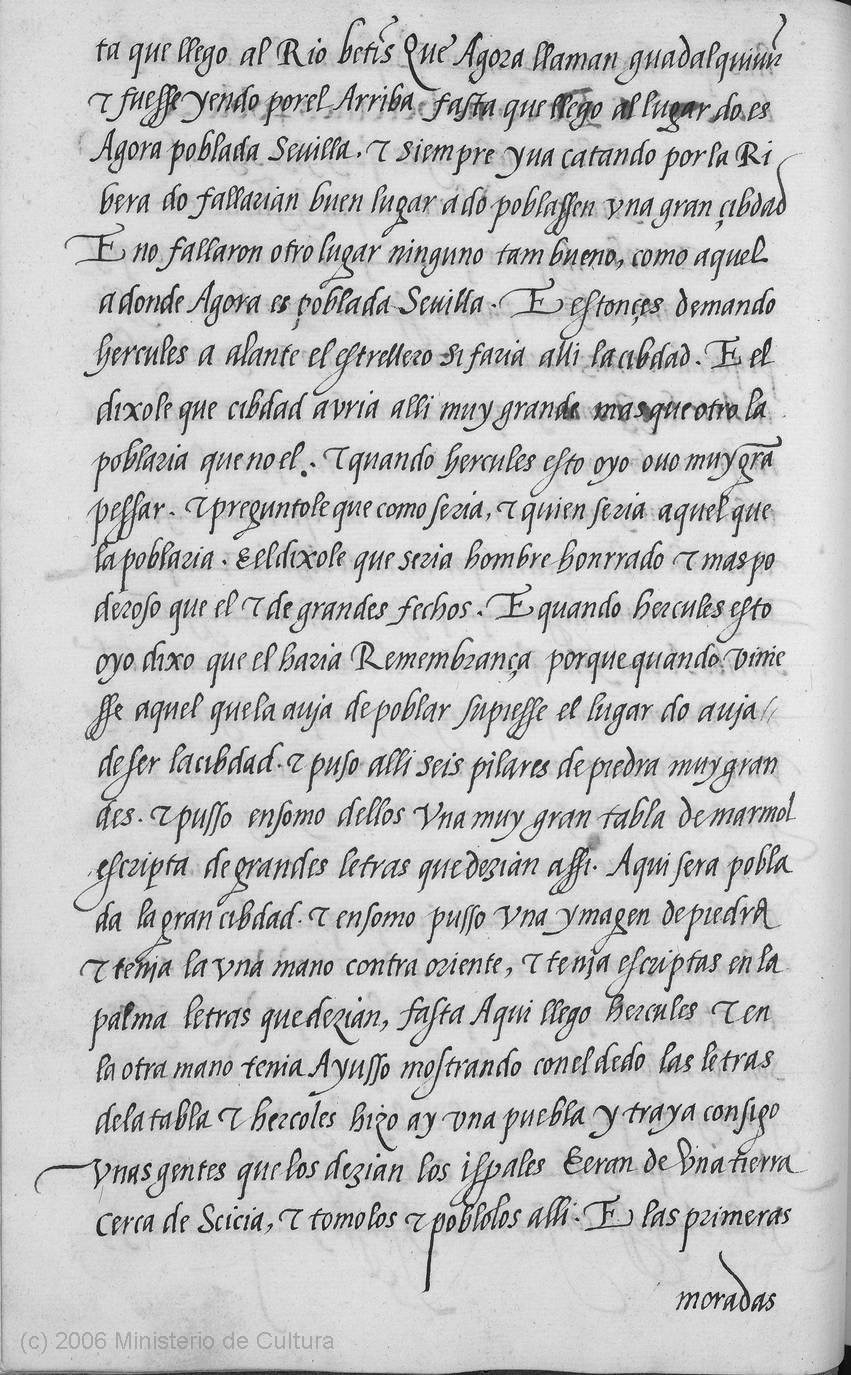 ta que llego al Rio betis Que Agora llaman guadalquiuir
⁊ fuesse yendo por el Arriba fasta que llego al lugar do es
Agora poblada Sevilla. ⁊ siempre yua catando por la Ri
bera do fallarian buen lugar a do poblassen vna gran çibdad
E no fallaron otro lugar ninguno tam bueno, como aquel
a donde Agora es poblada Sevilla. E estonçes demando
hercules a alante el estrellero si faria alli la cibdad. E el
dixole que cibdad avria alli muy grande mas que otro la
poblaria que no el. ⁊ quando hercules esto oyo ouo muy grā
pessar. ⁊ preguntole que como seria, ⁊ quien seria aquel que
la poblaria. E el dixole que seria hombre honrrado ⁊ mas po
deroso que el ⁊ de grandes fechos. E quando hercules esto
oyo dixo que el haria Remembrança porque quando vinie
sse aquel que la auja de poblar supiesse el lugar do auja
de ser la cibdad. ⁊ puso alli seis pilares de piedra muy gran
des. ⁊ pusso ensomo dellos Vna muy gran tabla de marmol
escripta de grandes letras que dezian assi. Aqui sera pobla
da la gran cibdad. ⁊ ensomo pusso vna ymagen de piedra
⁊ tenja la vna mano contra oriente, ⁊ tenja escriptas en la
palma letras que dezian, fasta Aqui llego hercules ⁊ en
la otra mano tenia Ayusso mostrando con el dedo las letras
de la tabla ⁊ hercoles hizo ay vna puebla y traya consigo
vnas gentes que los dezian los ispales E eran de vna tierra
cerca de Scicia, ⁊ tomolos ⁊ poblolos alli. E las primeras
moradas
(c) 2006 Ministerio de Cultura